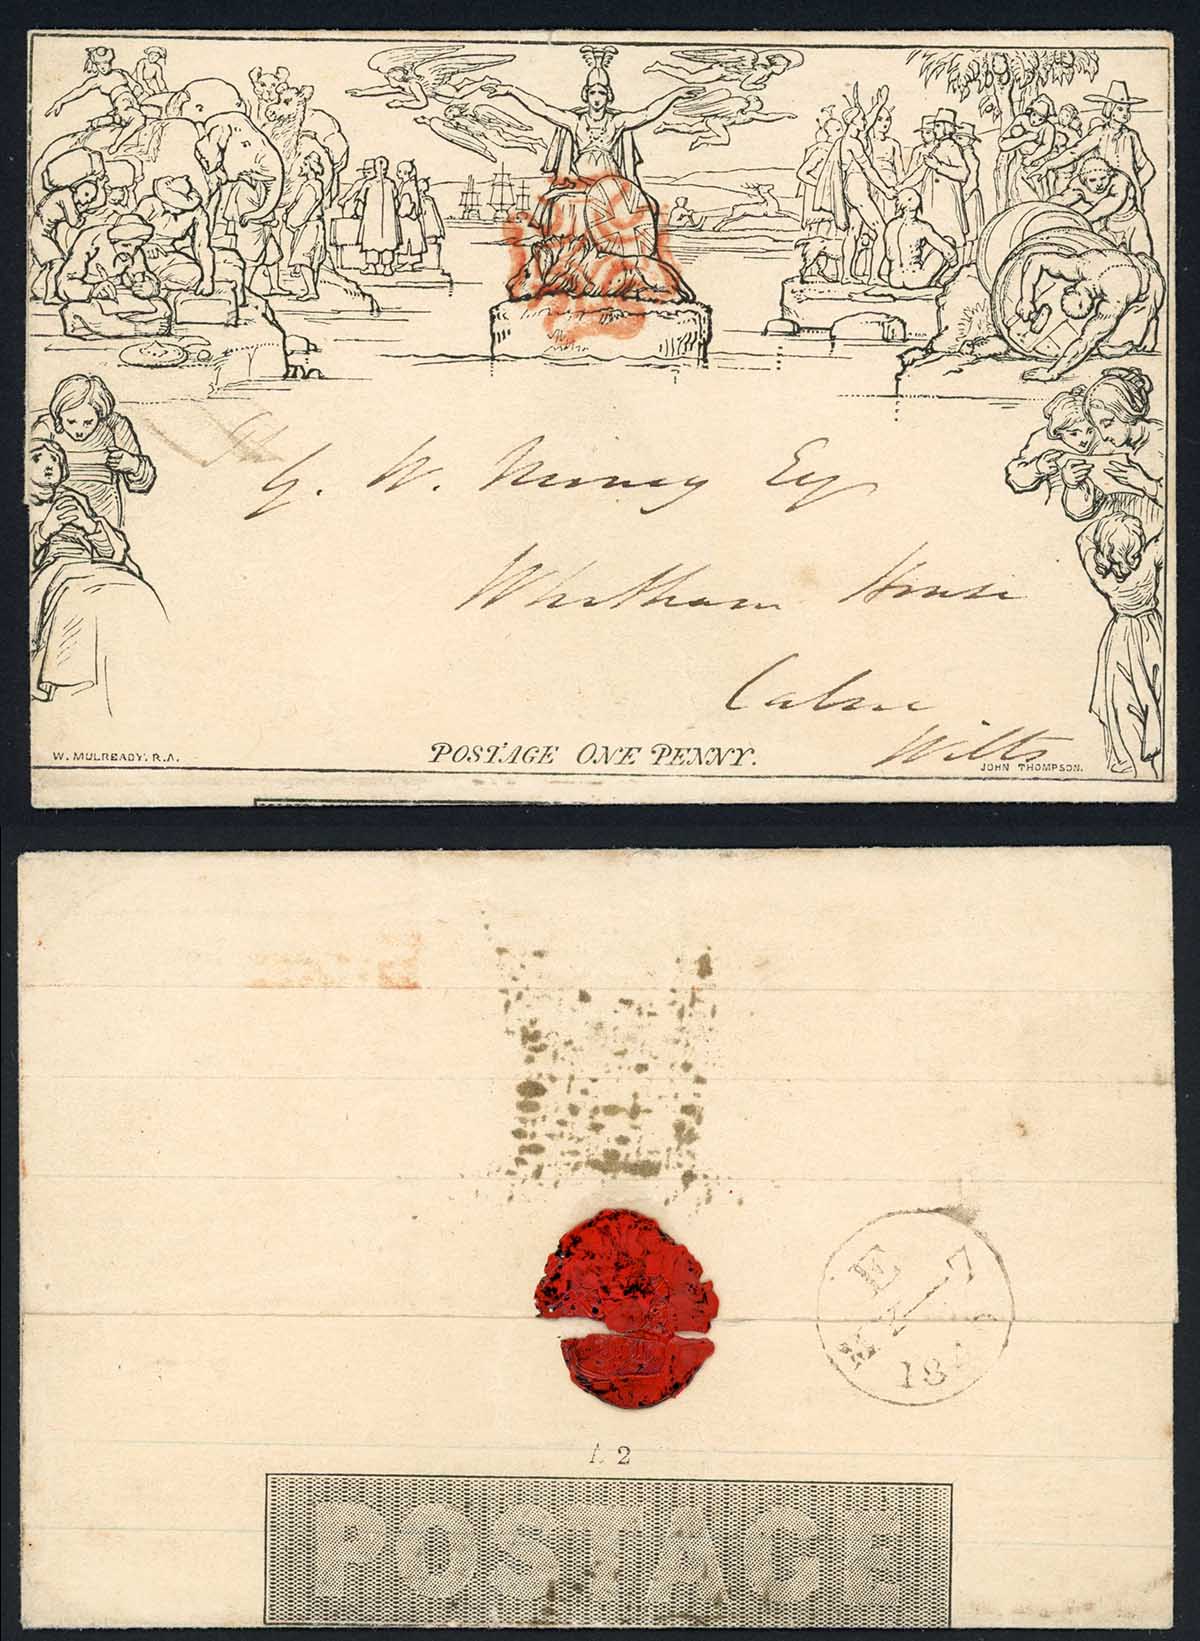 G. W. Esq
House
Calne
Wilts
W. MULREADY. R.A.
POSTAGE ONE PENNY.
JOHN THOMPSON.
E
MY 7
184
A 2
POSTAGE